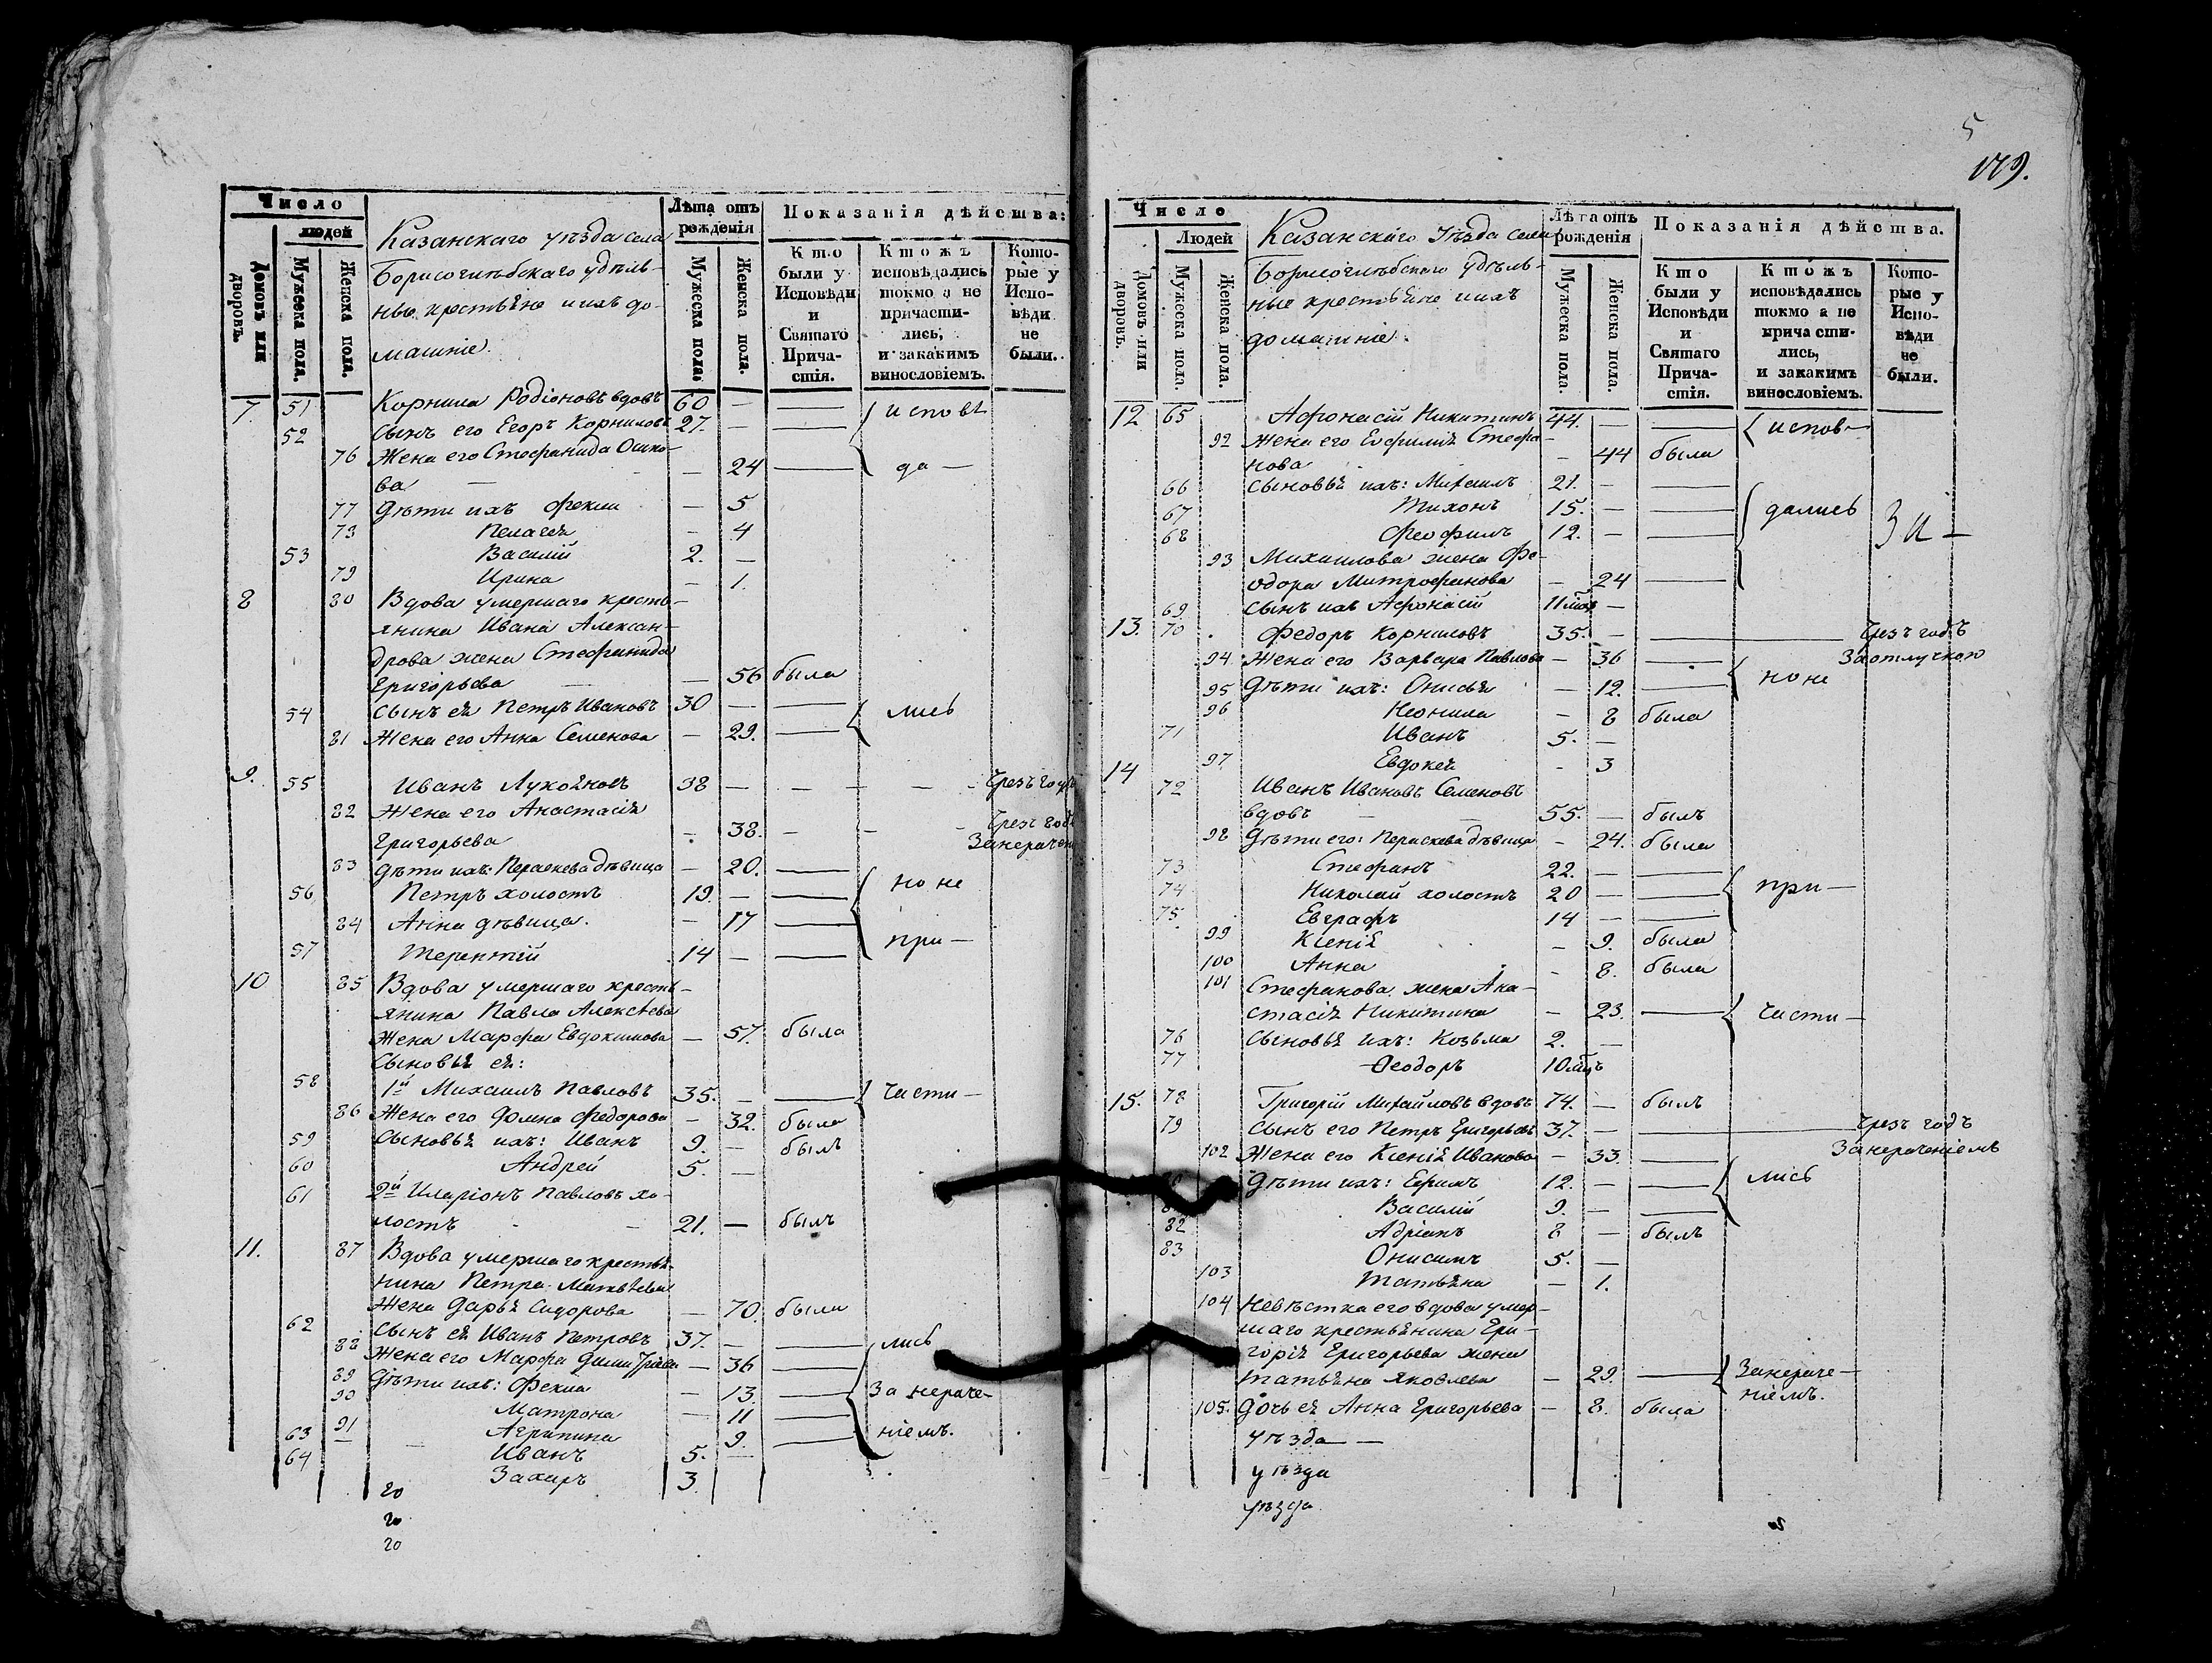 Число
людей
Домовъ или дворовъ.
Мужеска пола.
Женска пола.
Казанскаго уѣзда села
Борисоглѣбскаго удѣль-
ные крестьяне и ихъ до-
машніе.
Лѣта отъ
рожденія
Мужеска пола.
Женска пола.
Показанія дѣйства:
Кто
были у
Исповѣди
и
Святаго
Прича-
стія.
Кто жъ
исповѣдались
токмо а не
причасти-
лись,
и закакимъ
винословіемъ.
Кото-
рые у
Испо-
вѣди
не
были.
7. 51 Корнила Родіоновъ вдовъ 60 — — исповѣ
52 сынъ его Егоръ Корниловъ 27. — —
76 Жена его Стефанида Осипо-
ва — — 24 — да —
77 Дѣти ихъ Фекла — 5
78 Пелагея — 4
53 Василій 2. —
79 Ирина — 1.
8 80 Вдова умершаго кресть-
янина Ивана Алексан-
дрова жена Стефанида
Григорьева — — 56 была
54 сынъ ея Петръ Ивановъ 30 — — лись
81 Жена его Анна Семенова — 29. —
9. 55 Иванъ Лукояновъ 38 — — — — Чрезъ годъ
82 Жена его Анастасія
Григорьева - 38. - - - Чрезъ годъ
Занераченіемъ
83 дѣти ихъ: Параскева дѣвица — 20. —
56 Петръ холостъ 19. — — но не
84 Анна дѣвица. — 17 —
57 Терентій 14 — — при-
10 85 Вдова умершаго кресть-
янина Павла Алексѣева
жена Марфа Евдокимова — 57. была
Сыновья ея:
58 1й Михаилъ Павловъ 35. — — части-
86 Жена его Домна Федорова — 32. была
59 Сыновья ихъ: Иванъ 9. — былъ
60 Андрей 5. —
61 2й Иларіонъ Павловъ хо-
лостъ - — 21. — былъ
11. 87 Вдова умершаго крестья-
нина Петра Матвѣева
жена Дарья Сидорова — 70. была
62 Сынъ ея Иванъ Петровъ 37. — — лись
88 Жена его Марфа Димитріева — 36 —
89 Дѣти ихъ: Фекла — 13. — За нераче-
90 Матрона — 11 —
91 Агрипина 9. — ніемъ.
63 Иванъ 5. —
64 Захаръ 3.
20
20
20
5
179.
Число
Людей
Домовъ или дворовъ.
Мужеска пола.
Женска пола.
Казанскаго Уѣзда села
Борисоглѣбскаго удѣль-
ные крестьяне и ихъ
домашніе.
Лѣта отъ
рожденія
Мужеска пола.
Женска пола.
Показанія дѣйства.
Кто
были у
Исповѣди
и
Святаго
Прича-
стія.
Кто жъ
исповѣдались
токмо а не
причасти-
лись,
и закакимъ
винословіемъ.
Кото-
рые у
Испо-
вѣди
не
были.
12 65 Афонасій Никитинъ 44. — — испов-
92 Жена его Евфимія Стефа-
нова — 44 была
66 Сыновья ихъ: Михаилъ 21. — —
67 Тихонъ 15. — — дались
68 Феофилъ 12. — —
93 Михаилова жена Фе-
одора Митрофанова — 24 —
69 Сынъ ихъ Афонасій 11 мѣс. —
13. 70 Федоръ Корниловъ 35. — — Чрезъ годъ
94 Жена его Варвара Павлова — 36 — Заотлучкою
95 Дѣти ихъ: Онисья — 12. — но не
96 Неонила — 8 была
71 Иванъ 5. —
97 Евдокея - 3
14 72 Иванъ Ивановъ Семеновъ
вдовъ — — 55. — былъ
98 Дѣти его: Параскева дѣвица — 24. была
73 Стефанъ 22. — —
74 Николай холостъ 20 — — при-
75 Евграфъ 14 — —
99 Ксенія — 9. была
100 Анна - 8. была
101 Стефанова жена Ана-
стасія Никитина — 23. — части-
76 Сыновья ихъ: Козьма 2. —
77 Ѳеодоръ 10 мцъ
15. 78 Григорій Михайловъ вдовъ 74. — былъ
79 Сынъ его Петръ Григорьевъ 37. — — Чрезъ годъ
102 Жена его Ксенія Иванова — 33. — Занераченіемъ
Дѣти ихъ: Ефимъ 12. — — лись
Василій 9. — —
82 Адріанъ 8 — былъ
83 Онисимъ 5. —
103 Татьяна — 1.
104 Невѣстка его вдова умер-
шаго крестьянина Гри-
горія Григорьева жена
Татьяна Яковлева — 29. — Занераче-
105. Дочь ея Анна Григорьева — 8. была ніемъ.
уѣзда —
уѣзда
уѣзда